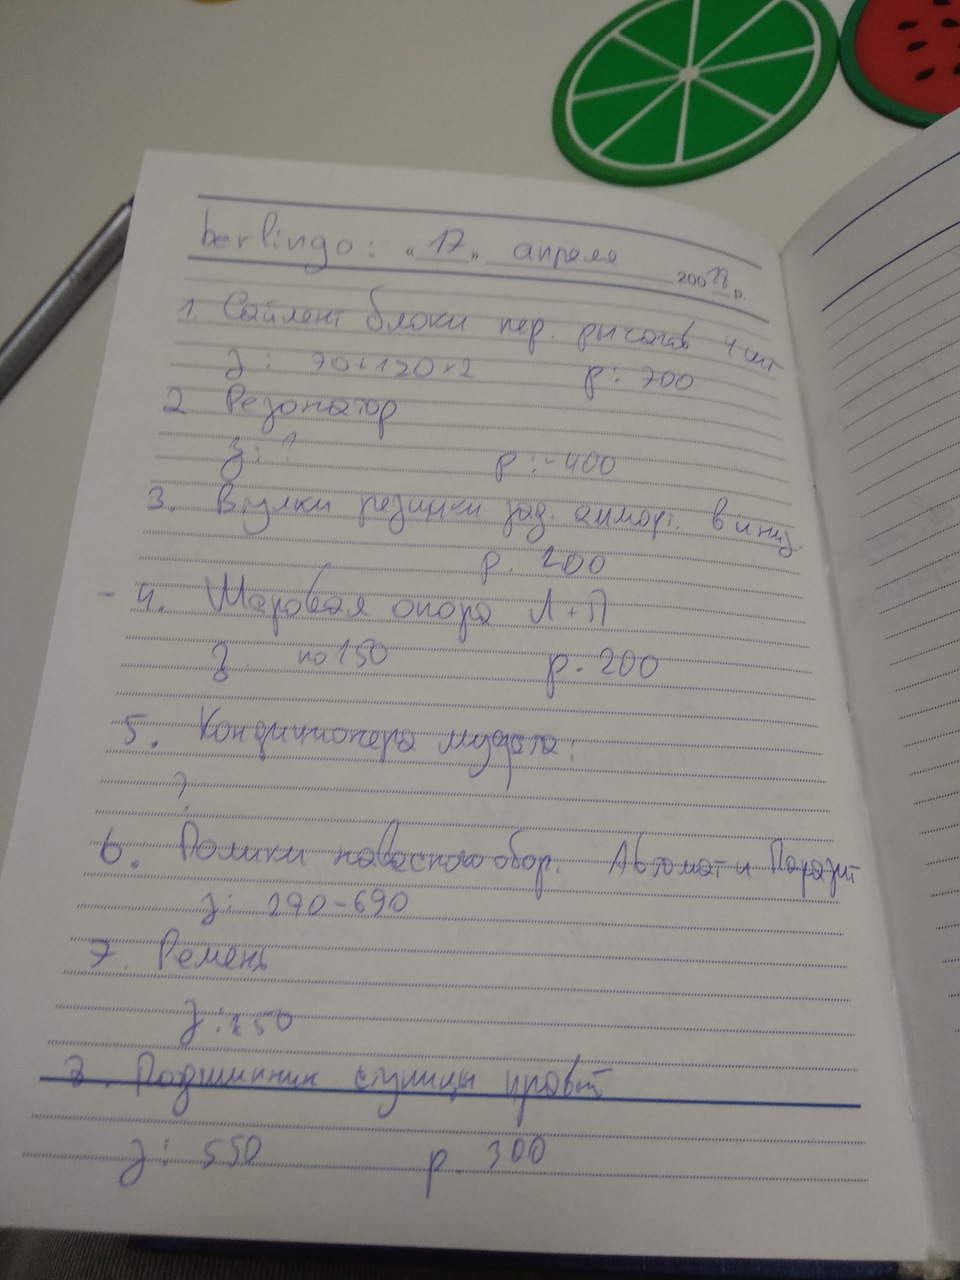 berlingo: "17" апреля 200 р.
1. Сайлент блоки пер. рычагов 4 шт
з: 70+120×2 р: 700
2 Резонатор
з: ? р: ~400
3. Втулки резинки зад. аморт. в низ.
р. 200
- 4. Шаровая опора Л+П
з по 150 р. 200
5. Кондиционера муфта:
?
6. Ролики навесного обор. Автомат и Паразит
з: 290-690
7. Ремень
з: 250
Подшипник ступицы правый
з: 550 р. 300